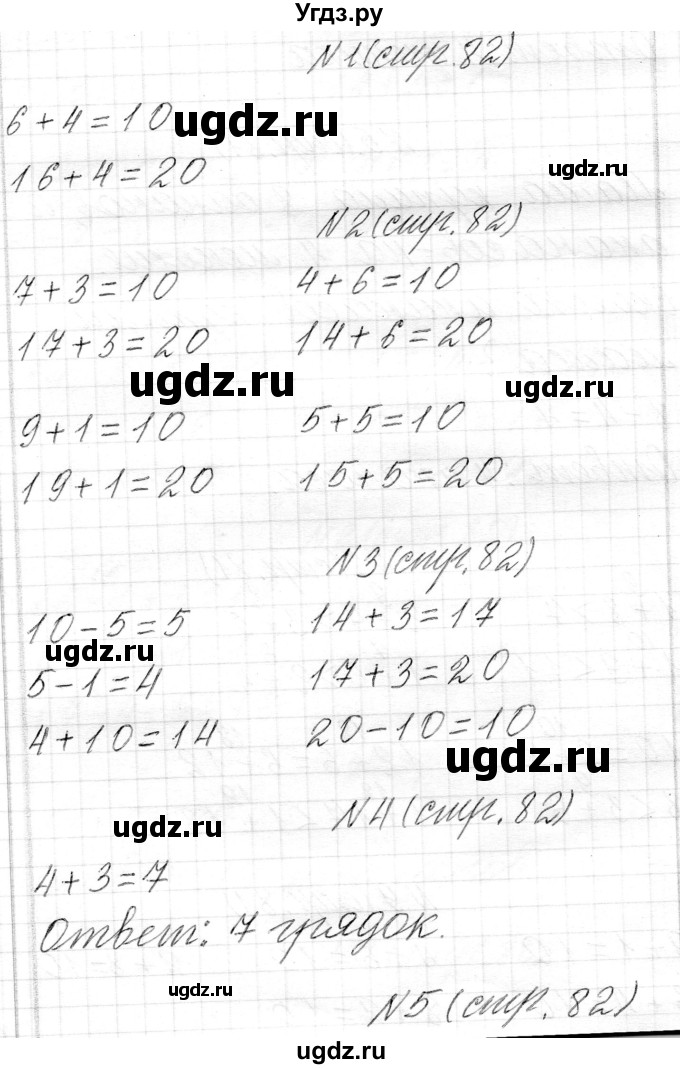 Угдз.ру
N1(стр.82)
6+4=10 ugdz.ru
16+4=20 ugdz.ru
N2(стр.82)
7+3=10 4+6=10
17+3=20 14+6=20
ugdz.ru ugdz.ru
9+1=10 5+5=10
19+1=20 15+5=20
N3(стр.82)
10-5=5 14+3=17
ugdz.ru
5-1=4 17+3=20
4+10=14 20-10=10
ugdz.ru
N4(стр.82)
ugdz.ru
4+3=7
Ответ: 7 грядок.
ugdz.ru
N5(стр.82)
ugdz.ru